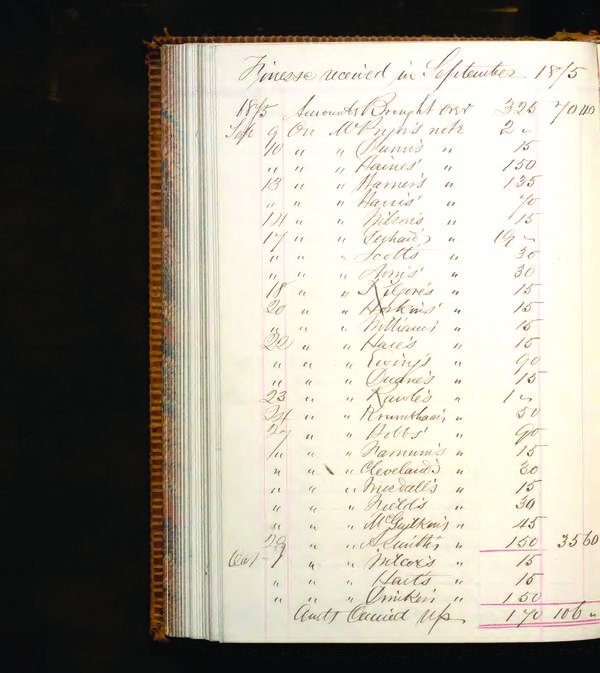 Finesse received in September 1875
1875 Amounts Brought over 325 70 40
Sep 9 On Mr Pryn's note 2 "
10 " " " 15
" " " Haines' " 150
13 " " Warner's " 135
" " " Harris' " 70
14 " " Wilson's " 15
17 " " " 19 "
" " " Scott's " 30
" " " " 30
18 " " Kilgore's " 15
20 " " Hoskins' " 15
" " " William's " 15
22 " " Hare's " 15
" " " Ewing's " 90
" " " Duane's " 15
23 " " Rawle's " 1 "
24 " " Krumbhaar's " 50
27 " " Hobbs' " 90
" " " Farnum's " 15
" " " Cleveland's " 30
" " " " 15
" " " Field's " 30
" " " " 45
29 " " A Smith's " 150 35 60
Oct 1 " " Wilcox's " 15
" " " Hart's " 15
" " " " 150
Amts Carried Up 170 106 "